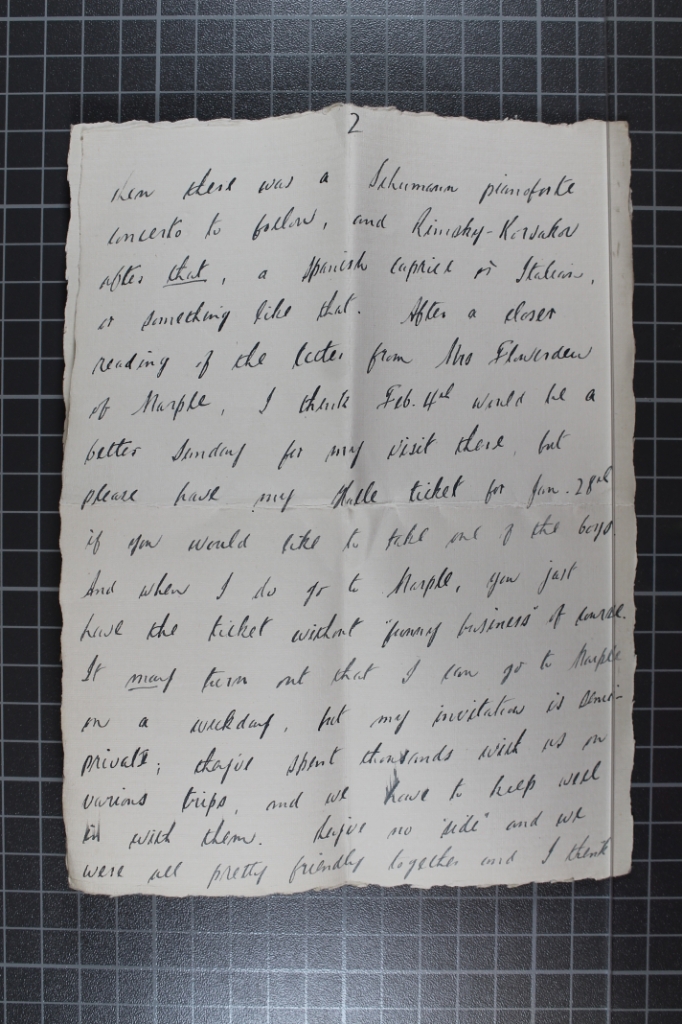 2
then there was a Schumann pianoforte
concerto to follow, and Rimsky-Korsakov
after that, a Spanish caprice or Italian,
or something like that. After a closer
reading of the letter from Mrs Flowerdew
of Marple, I think Feb. 4th would be a
better Sunday for my visit there, but
please have my Halle ticket for Jan. 28th
if you would like to take one of the boys.
And when I do go to Marple, you just
have the ticket without "funny business" of course.
It may turn out that I can go to Marple
on a weekday, but my invitation is semi-
private; they've spent thousands with us on
various trips, and we have to keep well
in with them. They've no "side" and we
were all pretty friendly together and I think